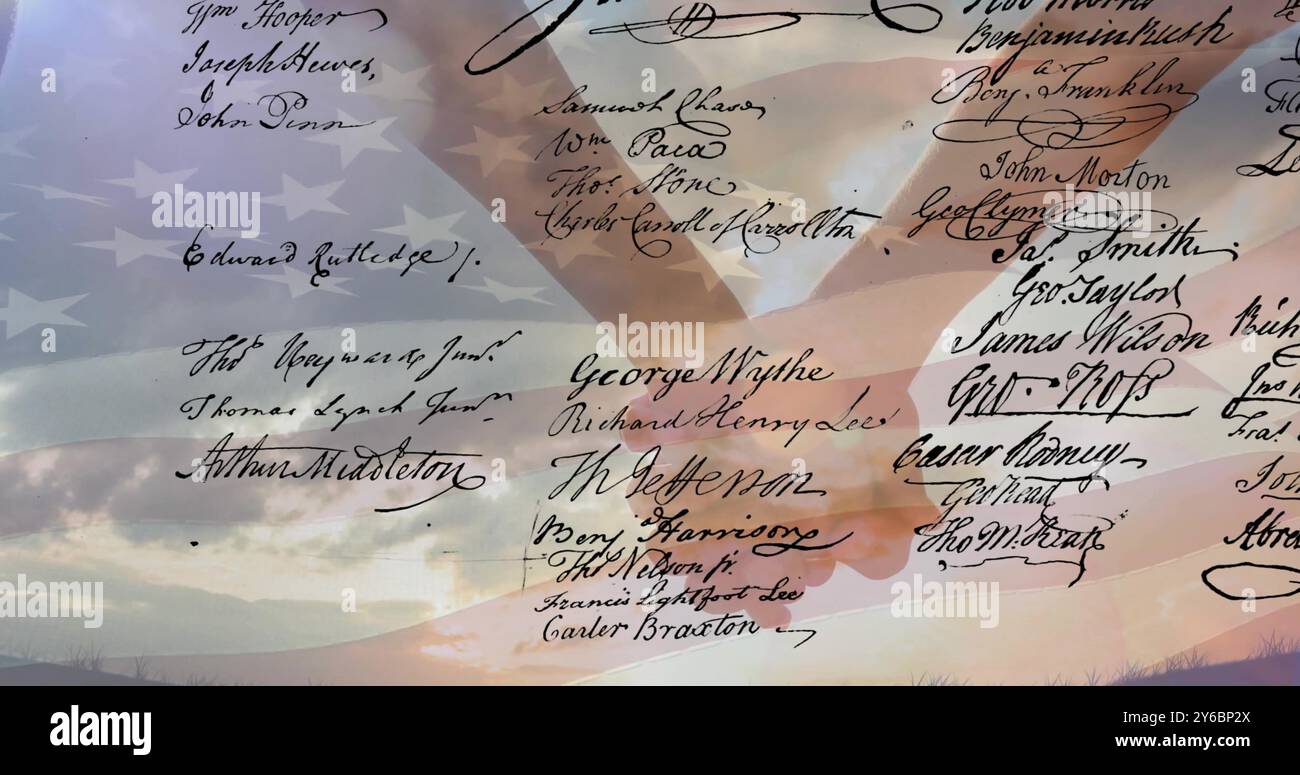 Wm Hooper
Joseph Hewes,
John Penn
Edward Rutledge /.
Thos Heyward Junr.
Thomas Lynch Junr.
Arthur Middleton
Samuel Chase
Wm Paca
Thos. Stone
Charles Carroll of Carrollton
George Wythe
Richard Henry Lee
Th Jefferson
Benj Harrison
Thos Nelson jr.
Francis Lightfoot Lee
Carter Braxton
Rob Morris
Benjamin Rush
Benja. Franklin
John Morton
Geo Clymer
Jas. Smith.
Geo. Taylor
James Wilson
Geo. Ross
Caesar Rodney
Geo Read
Tho M:Kean
alamy
a
alamy
Image ID: 2Y6BP2X
www.alamy.com